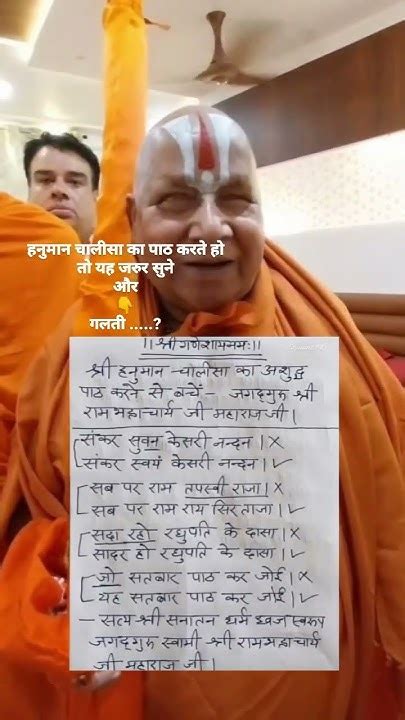 हनुमान चालीसा का पाठ करते हो
तो यह जरुर सुने
और
👇
गलती .....?
।। श्री गणेशाय नमः ।।
श्री हनुमान -चालीसा का अशुद्ध
पाठ करने से बचें - जगद्गुरु श्री
रामभद्राचार्य जी महाराज जी ।
संकर सुवन केसरी नन्दन । ×
संकर स्वयं केसरी नन्दन । ✓
सब पर राम तपस्वी राजा । ×
सब पर राम राय सिरताजा । ✓
सदा रहो रघुपति के दासा । ×
सादर हो रघुपति के दासा । ✓
जो सतबार पाठ कर जोई । ×
यह सतबार पाठ कर जोई । ✓
- सत्य श्री सनातन धर्म ध्वज स्वरूप
जगद्गुरु स्वामी श्री रामभद्राचार्य
जी महाराज जी ।